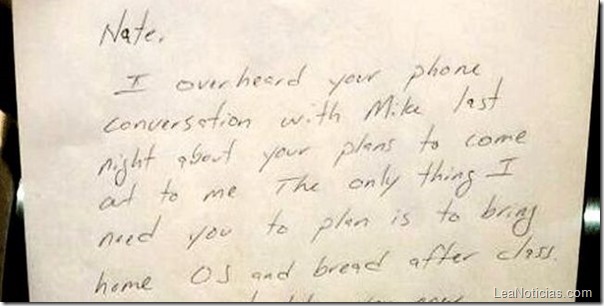 Nate,
I overheard your phone
conversation with Mike last
night about your plans to come
out to me The only thing I
need you to plan is to bring
home OJ and bread after class.
LeaNoticias.com